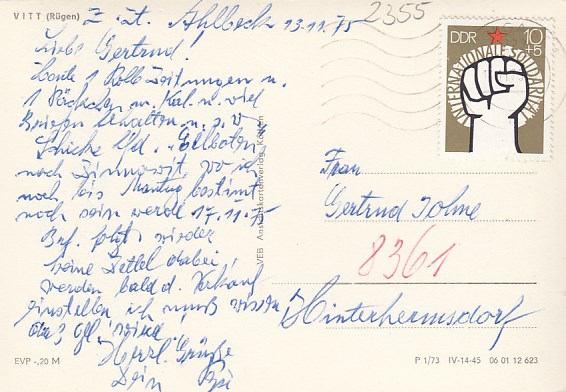 VITT (Rügen)
Z. Zt. Ahlbeck 13.11.75
Liebe Gertrud!
Heute 1 Rolle Zeitungen u.
1 Päckchen m. Kal. u. viel
Briefen erhalten u.
Schicke
nach Zinnowitz, wo ich
noch bis Montag bestimmt
noch sein werde 17.11.75
Brf. folgt wieder
keine Zettel dabei,
werden bald d. Verkauf
einstellen, ich muß wissen
Herzl. Grüße
Dein
EVP -,20 M
VEB Ansichtskartenverlag Köthen
2355
DDR 10
+5
INTERNATIONALE SOLIDARITÄT
Frau
Gertrud Johne
8361
Hinterhermsdorf
P 1/73 IV-14-45 06 01 12 623